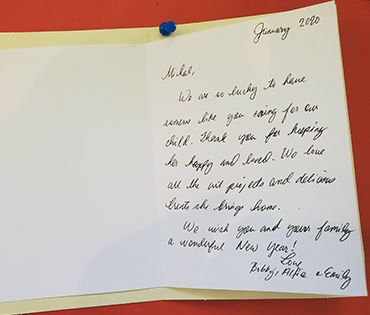 January 2020
We are so lucky to have
someone like you caring for our
child. Thank you for keeping
her happy and loved. We love
all the art projects and delicious
treats she brings home.
We wish you and your family
a wonderful New Year!
Love